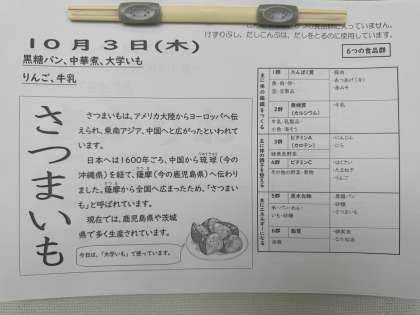 の食品群に入っていません。
けずりぶし、だしこんぶは、だしをとるのに使用しています。
10月3日(木)
黒糖パン、中華煮、大学いも
りんご、牛乳
さつまいも
さつまいもは、アメリカ大陸からヨーロッパへ伝
えられ、東南アジア、中国へと広がったといわれて
います。
日本へは1600年ごろ、中国から琉球(今の
沖縄県)を経て、薩摩(今の鹿児島県)へ伝わり
ました。薩摩から全国へ広まったため、「さつまい
も」と呼ばれています。
現在では、鹿児島県や茨城
県で多く生産されています。
今日は、「大学いも」で使っています。
6つの食品群
1群 たんぱく質
・豚肉
2群 無機質
(カルシウム)
・牛乳
牛乳・乳製品・
小魚・海そう
3群 ビタミンA
(カロテン)
・にんじん
・にら
緑黄色野菜
4群 ビタミンC
その他の野菜・果物
・はくさい
・たまねぎ
・りんご
5群 炭水化物
いも・砂糖
・黒糖パン
・砂糖
・さつまいも
6群 脂質
油脂
・なたね油